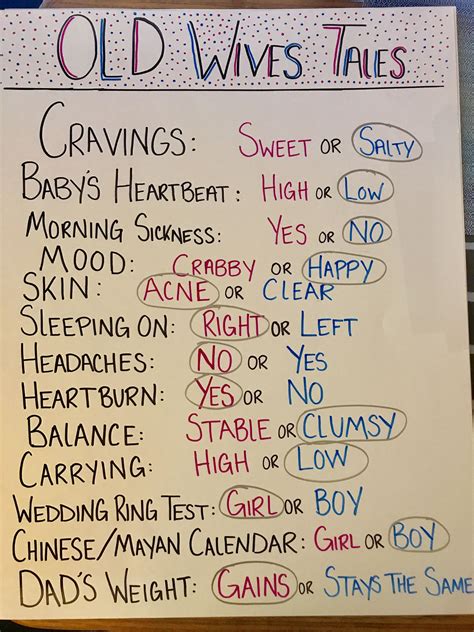 OLD WIVES TALES
CRAVINGS: SWEET OR SALTY
BABY'S HEARTBEAT: HIGH OR LOW
MORNING SICKNESS: YES OR NO
MOOD: CRABBY OR HAPPY
SKIN: ACNE OR CLEAR
SLEEPING ON: RIGHT OR LEFT
HEADACHES: NO OR YES
HEARTBURN: YES OR NO
BALANCE: STABLE OR CLUMSY
CARRYING: HIGH OR LOW
WEDDING RING TEST: GIRL OR BOY
CHINESE/MAYAN CALENDAR: GIRL OR BOY
DAD'S WEIGHT: GAINS OR STAYS THE SAME